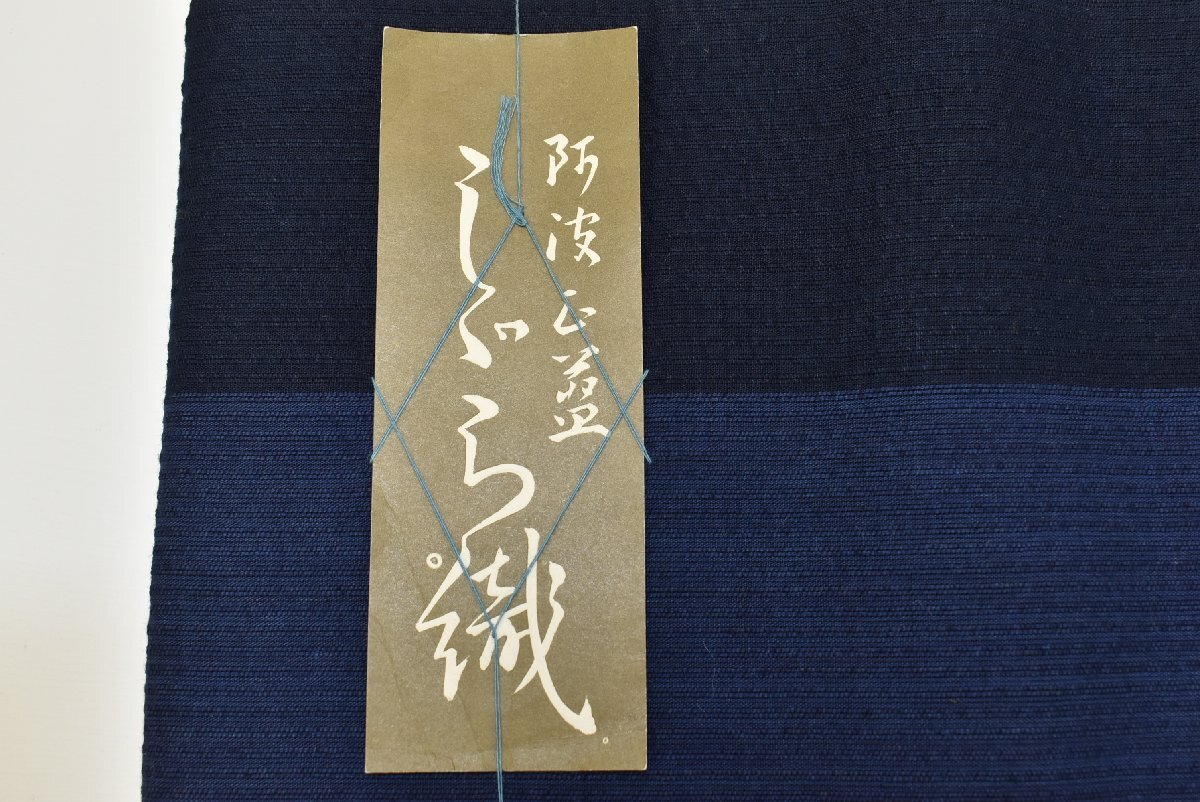 阿波正藍
しゞら織